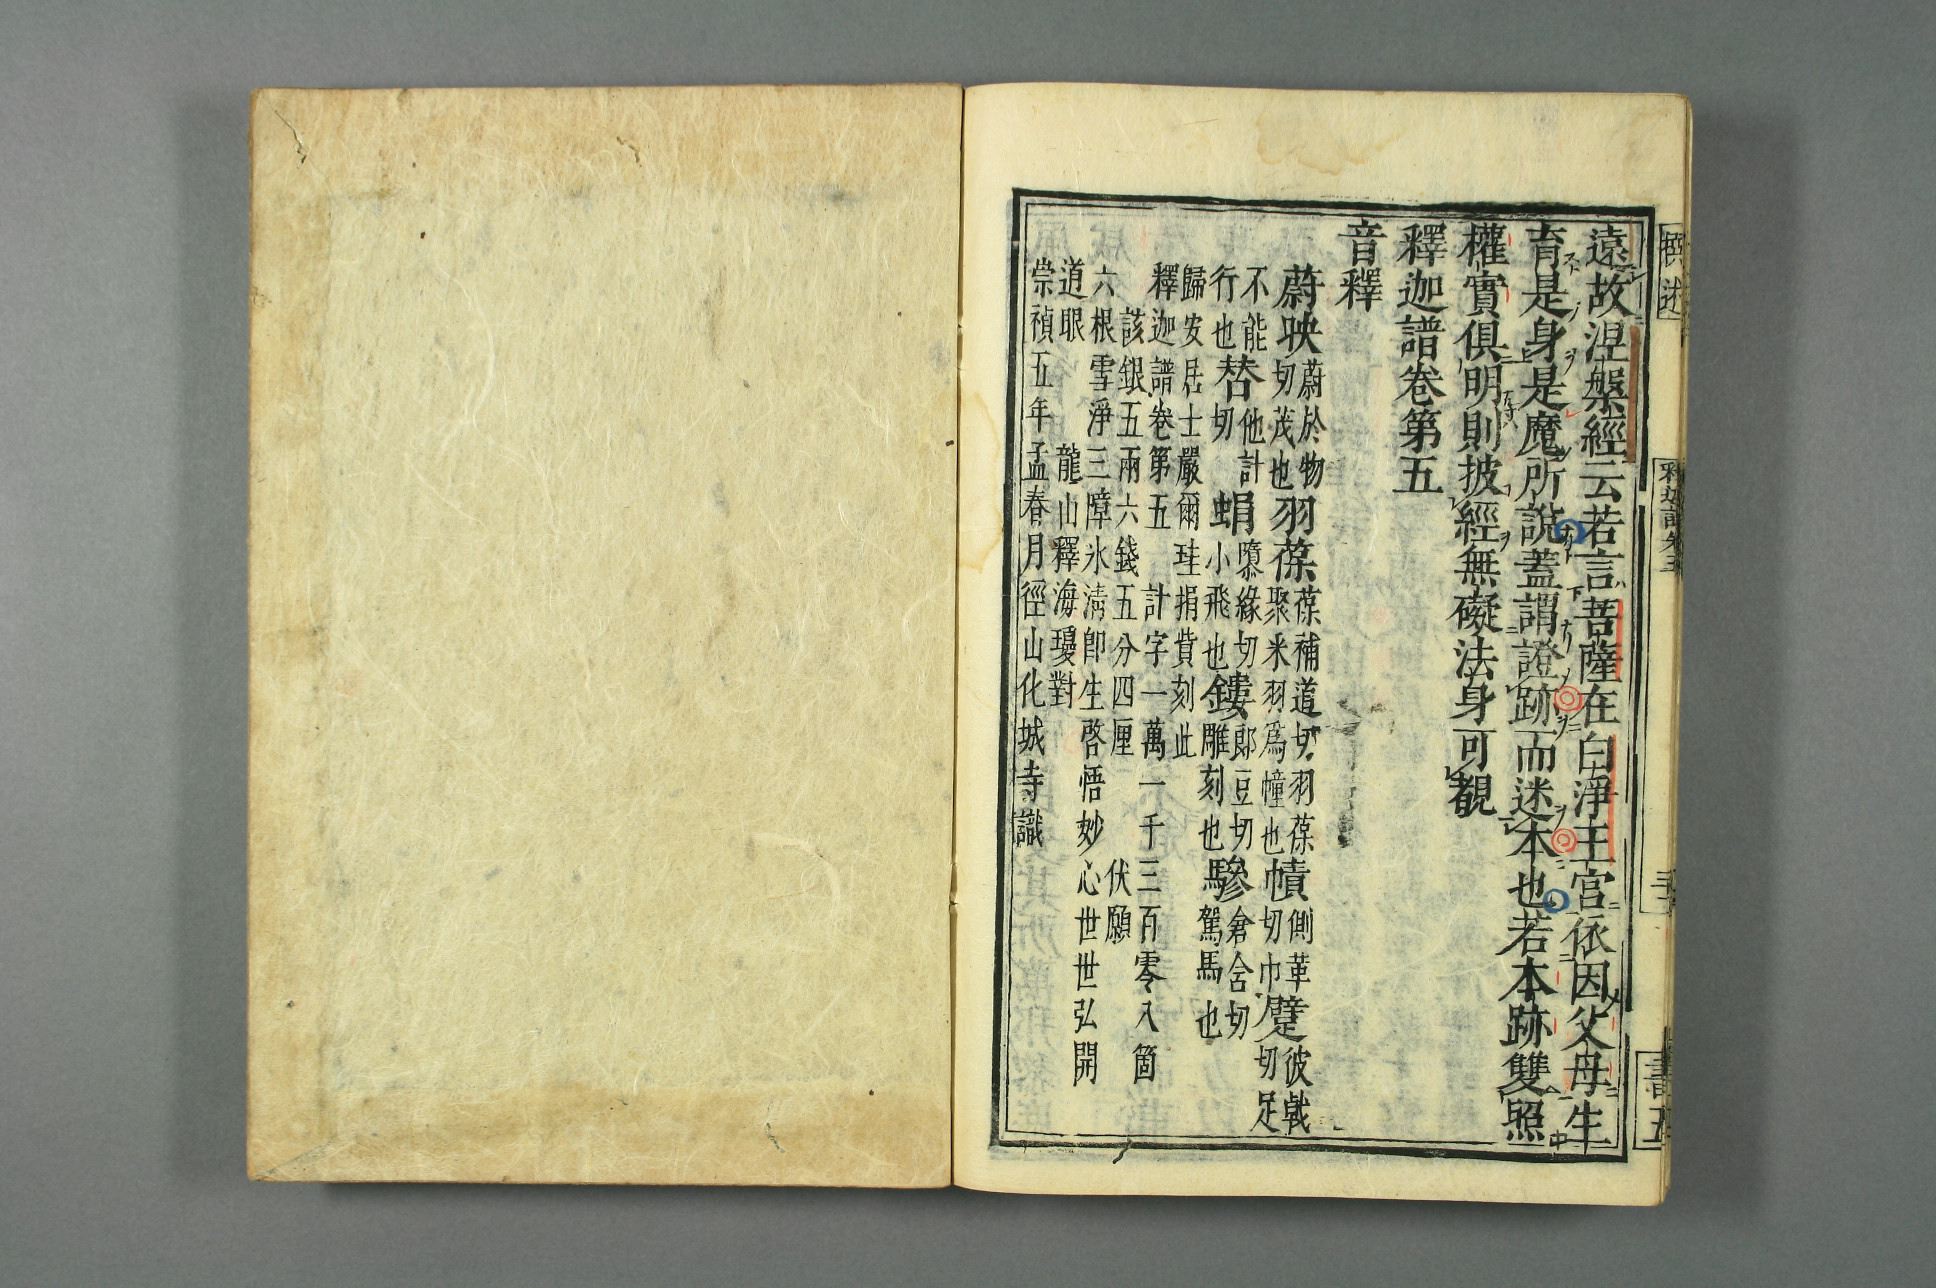 遠故涅槃經云若言菩薩在白淨王宮依因父母生
育是身是魔所說蓋謂證跡而迷本也若本跡雙照
權實俱明則披經無礙法身可覩
釋迦譜卷第五
音釋
蔚映蔚於物切茂也羽葆葆補道切羽葆聚米羽爲幢也幘側革切巾躄彼戟切足
不能行也替他計切蜎隳緣切小飛也鏤郎豆切雕刻也驂倉含切駕馬也
歸安居士嚴爾珪捐貲刻此
釋迦譜卷第五 計字一萬一千三百零八箇
該銀五兩六錢五分四厘 伏願
六根雪淨三障氷淸卽生啓悟妙心世世弘開
道眼 龍山釋海瓊對
崇禎五年孟春月徑山化城寺識